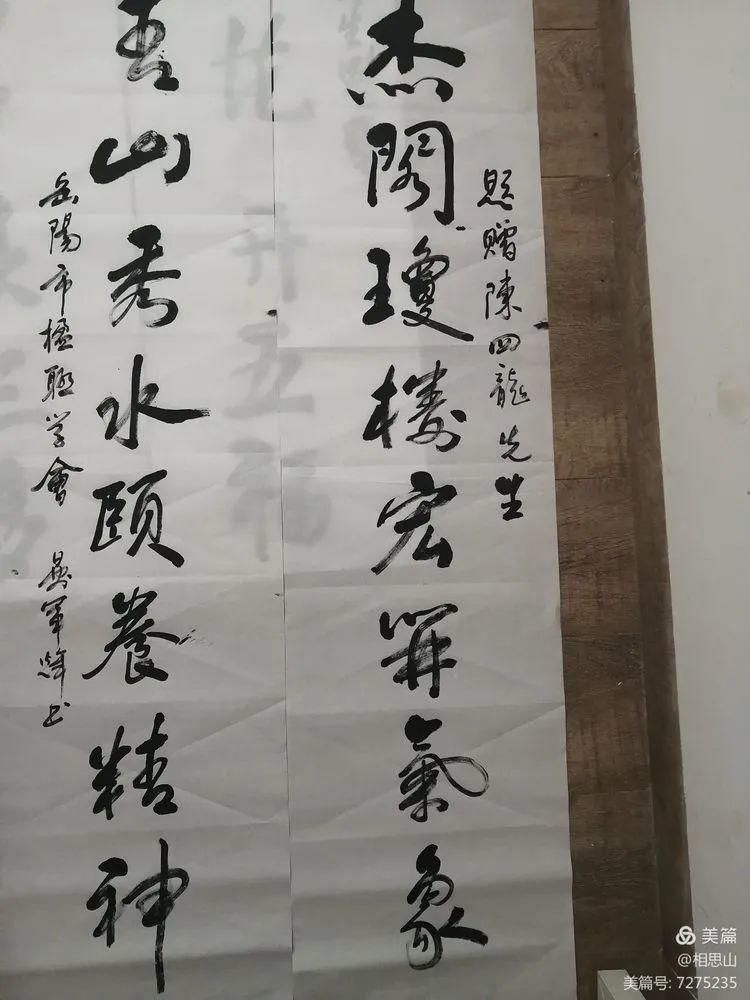 贈陳四龍先生
杰閣瓊樓宏開氣象
山秀水頤養精神
岳陽市楹聯学會 軍书
五福
美篇
@相思山
美篇号: 7275235